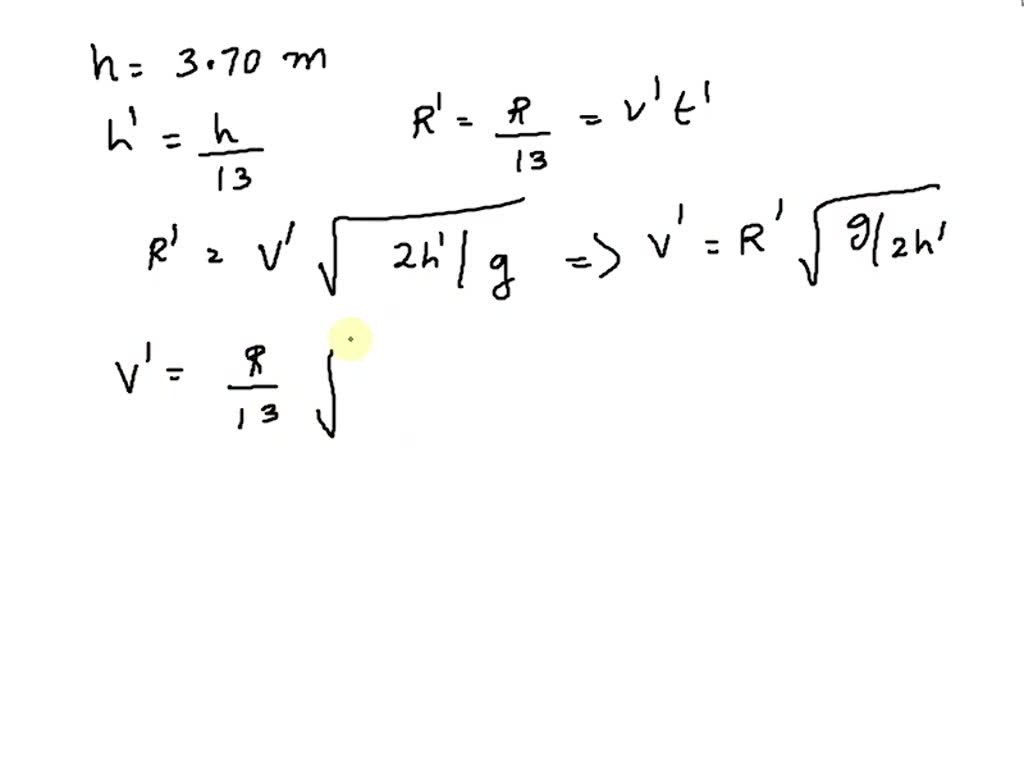 h = 3.70 m
h' = h/13 R' = R/13 = v't'
R' = V' √2h'/g => V' = R' √g/2h'
V' = R/13 √